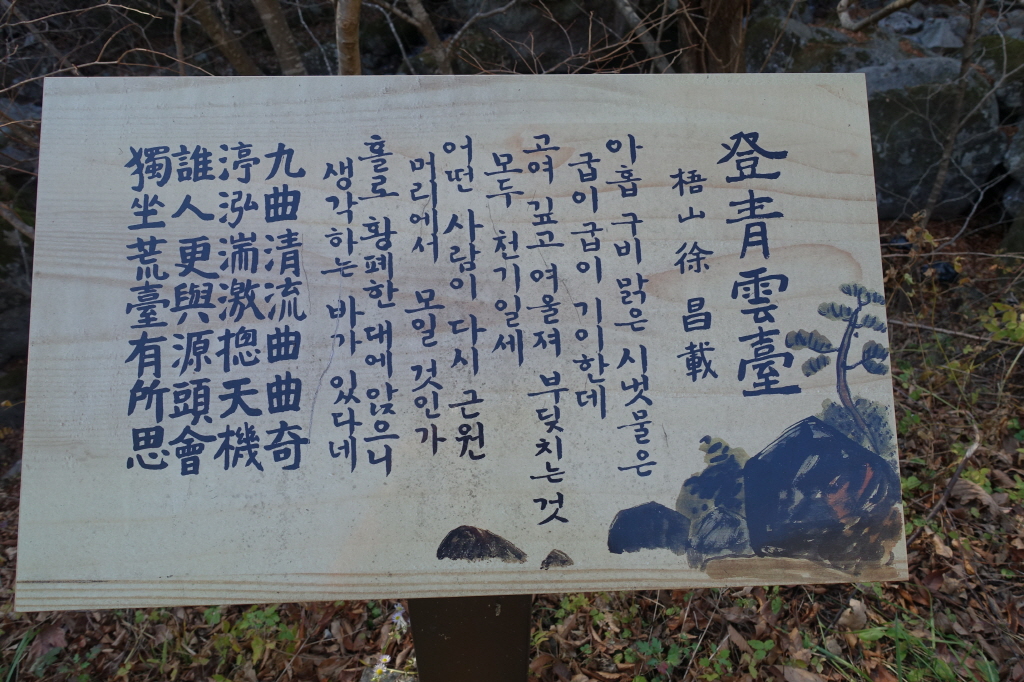 登青雲臺
梧山 徐昌載
아홉 구비 맑은 시냇물은
굽이굽이 기이한데
고여 깊고 여울져 부딪치는것
모두 천기일세
어떤 사람이 다시 근원
머리에서 모일 것인가
홀로 황폐한 대에 앉으니
생각하는 바가 있다네
九曲清流曲曲奇
渟泓湍激摠天機
誰人更與源頭會
獨坐荒臺有所思